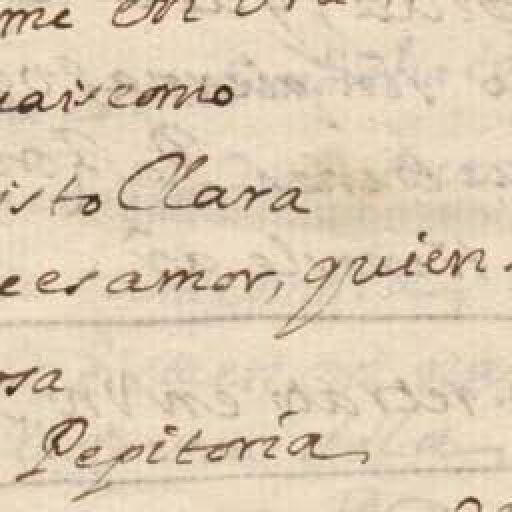 me en
uaiscomo
isto Clara
e es amor, quien
osa
Pepitoria,